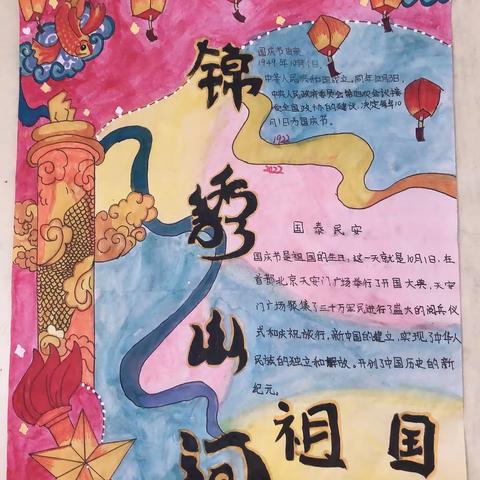 锦绣山河
祖国
国庆节由来
1949年10月1日,
中华人民共和国成立。同年12月3日,
中央人民政府委员会第四次会议接
受全国政协的建议,决定每年10
月1日为国庆节。
1922
2022
国泰民安
国庆节是祖国的生日,这一天就是10月1日,在
首都北京天安门广场举行了开国大典,天安
门广场聚集了三十万军民进行了盛大的阅兵仪
式和庆祝旅行。新中国的建立,实现了中华人
民族的独立和解放。开创了中国历史的新
纪元。